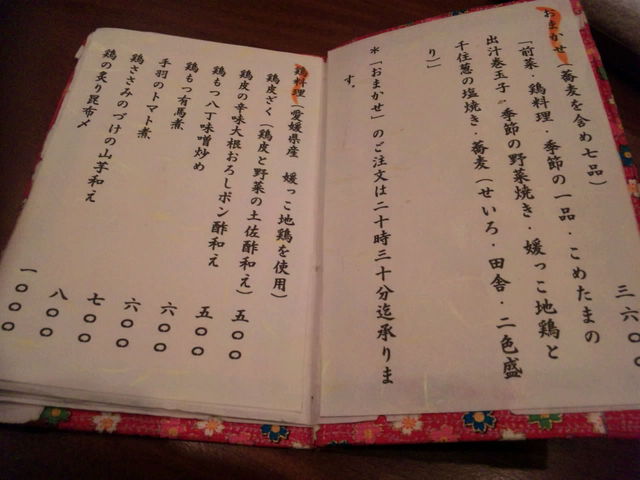 おまかせ（蕎麦を含め七品） 三六〇〇
「前菜・鶏料理・季節の一品・こめたまの
出汁巻玉子・季節の野菜焼き・媛っこ地鶏と
千住葱の塩焼き・蕎麦（せいろ・田舎・二色盛
り）」
＊「おまかせ」のご注文は二十時三十分迄承りま
す。
鶏料理（愛媛県産　媛っこ地鶏を使用）
鶏皮ざく（鶏皮と野菜の土佐酢和え） 五〇〇
鶏皮の辛味大根おろしポン酢和え 五〇〇
鶏もつ八丁味噌炒め 六〇〇
鶏もつ有馬煮 六〇〇
手羽のトマト煮 七〇〇
鶏ささみのづけの山芋和え 八〇〇
鶏の炙り昆布〆 一〇〇〇